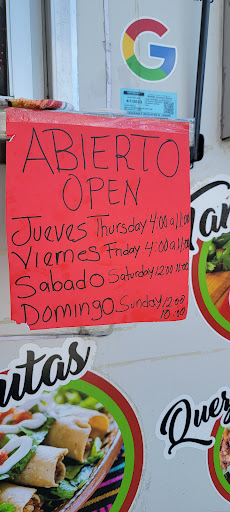 ABIERTO
OPEN
Jueves Thursday 4:00 a 11:00
Viernes Friday 4:00 a 11:00
Sabado Saturday 12:00 11:00
Domingo Sunday 12:00
10:00